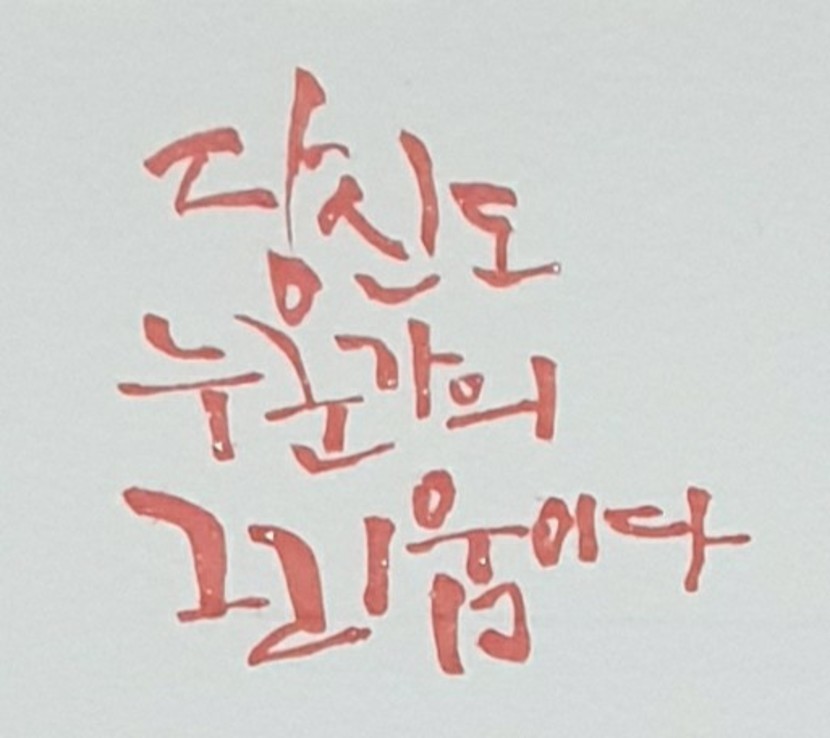 당신도
누군가의
그리움이다